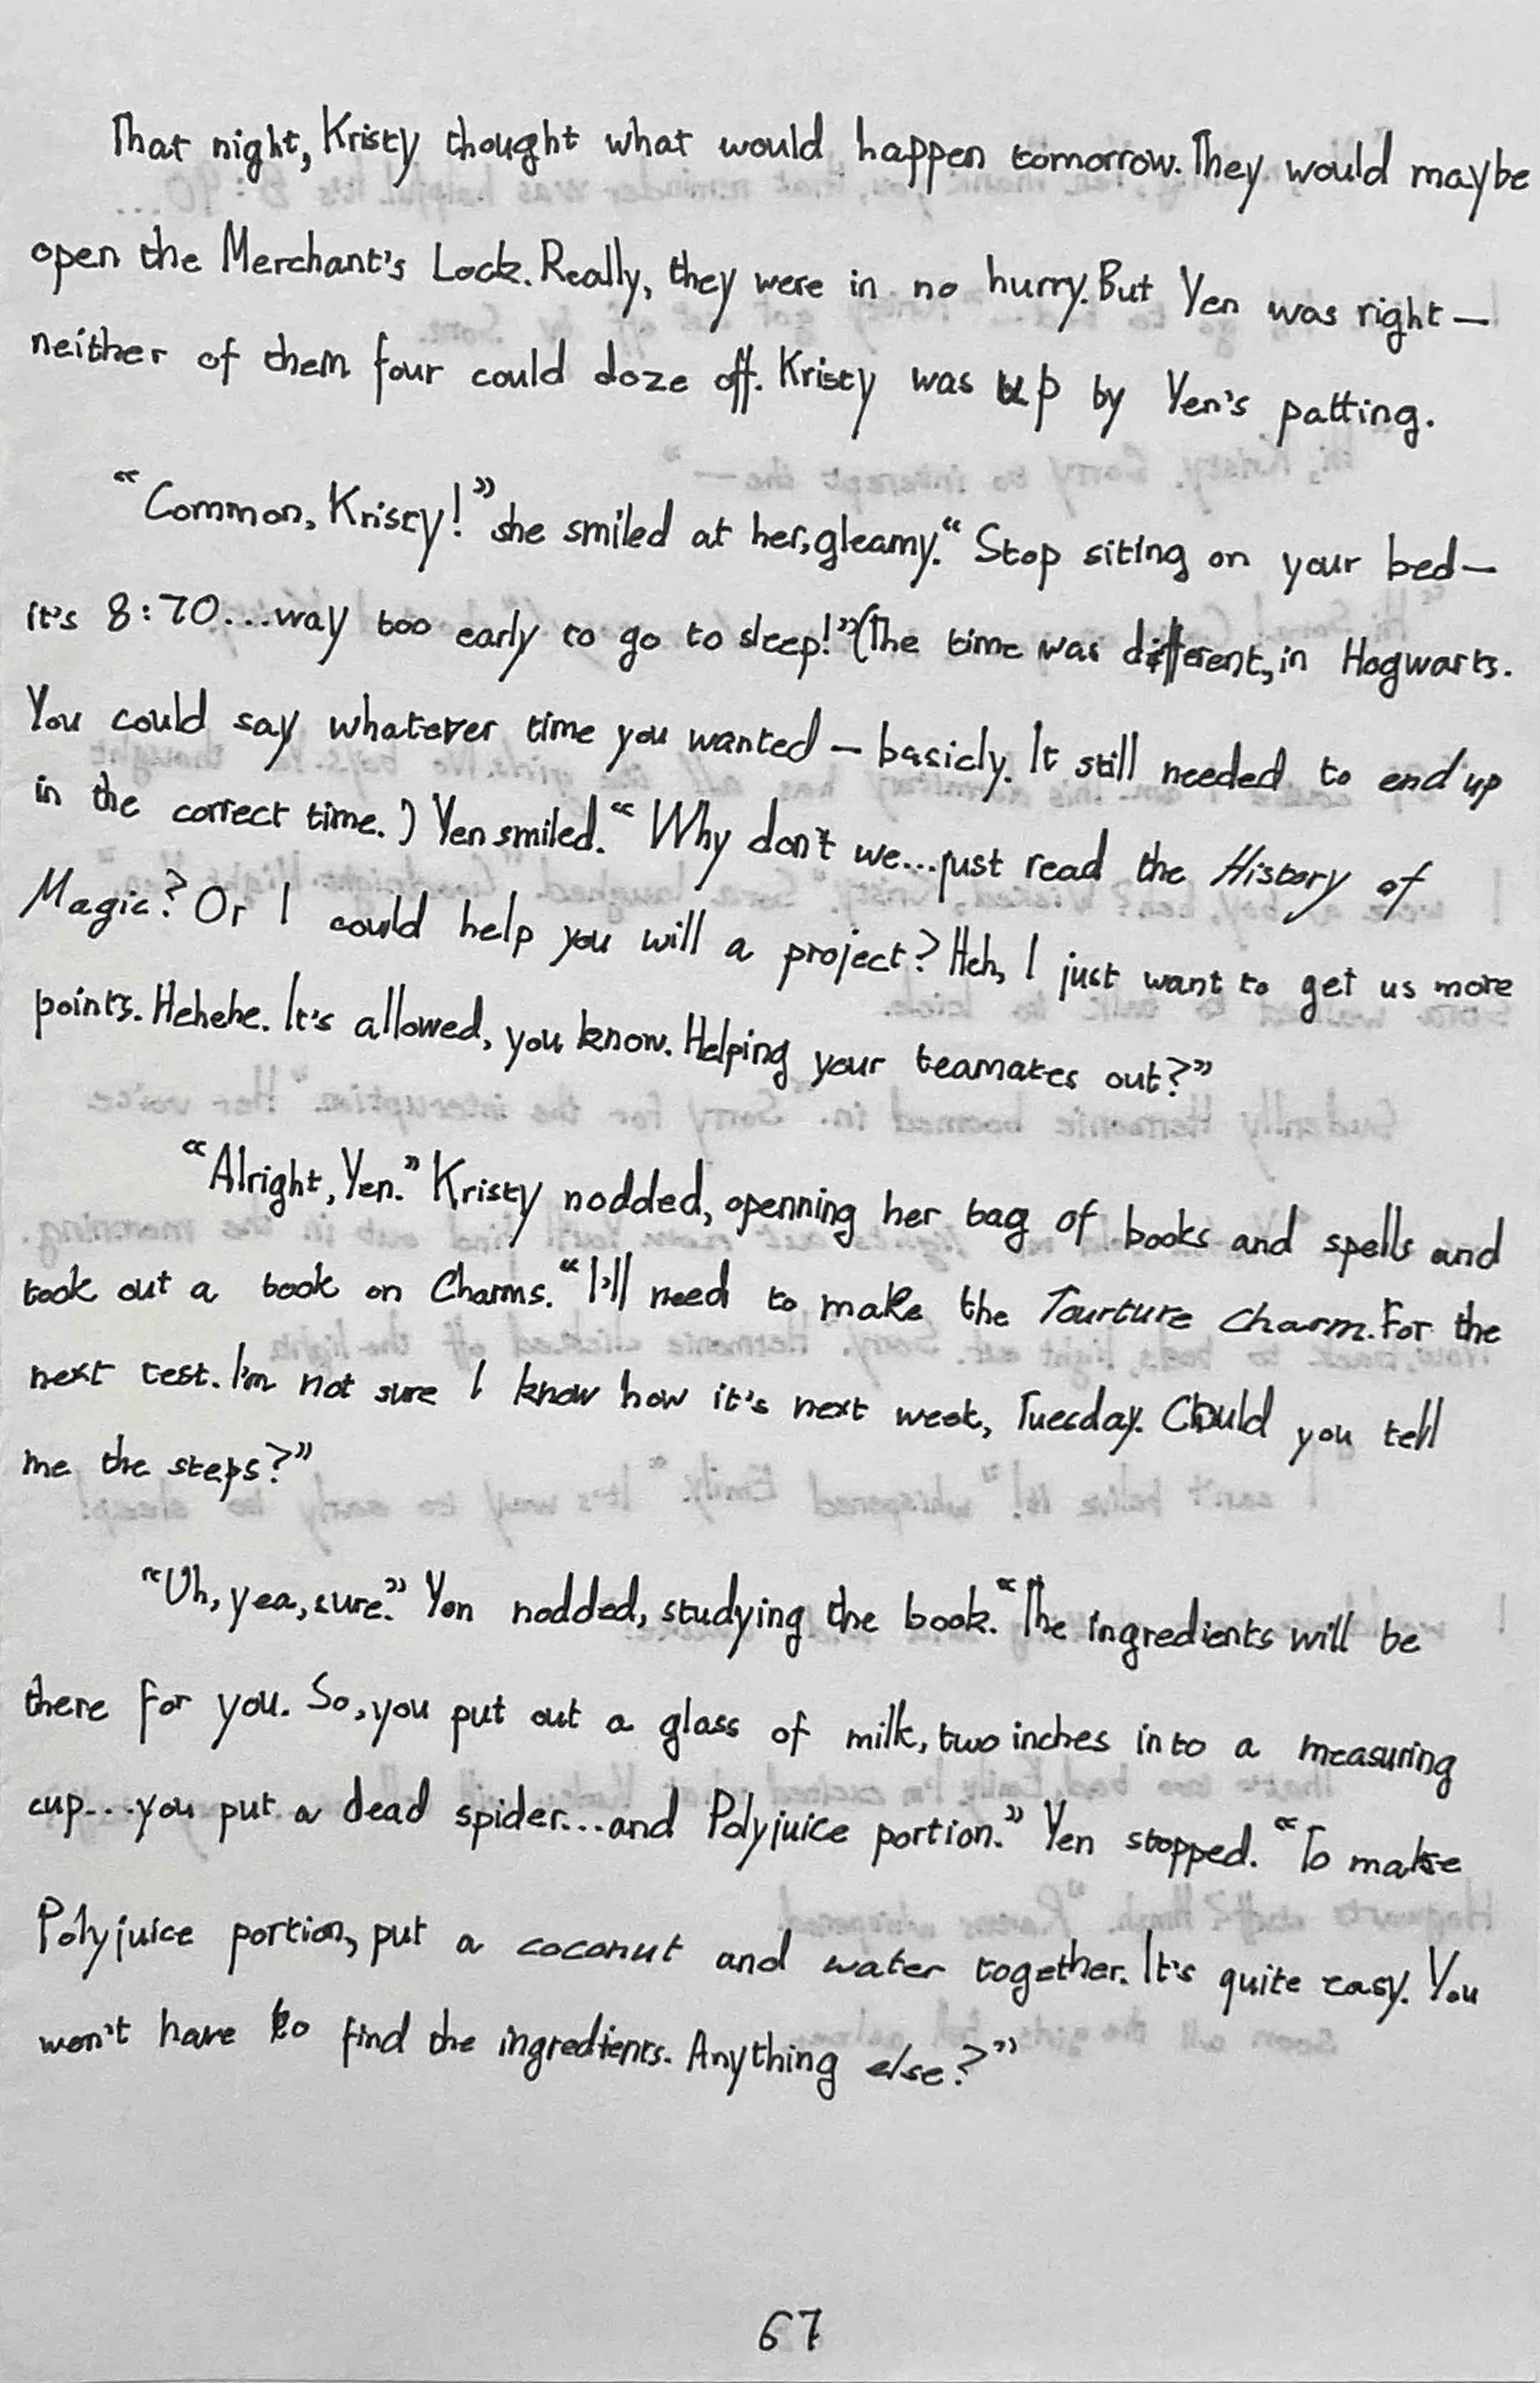 That night, Kristy thought what would happen tomorrow. They would maybe
open the Merchant's Lock. Really, they were in no hurry. But Yen was right—
neither of them four could doze off. Kristy was up by Yen's patting.
“Common, Kristy!” she smiled at her, gleamy. “Stop siting on your bed—
it's 8:70...way too early to go to sleep!” (The time was different, in Hogwarts.
You could say whatever time you wanted — basicly. It still needed to end up
in the correct time.) Yen smiled. “Why don't we...just read the History of
Magic? Or I could help you will a project? Heh, I just want to get us more
points. Hehehe. It's allowed, you know. Helping your teamates out?”
“Alright, Yen.” Kristy nodded, openning her bag of books and spells and
took out a book on Charms. “I'll need to make the Tourture Charm. For the
next test. I'm not sure I know how it's next week, Tuesday. Could you tell
me the steps?”
“Uh, yea, sure.” Yen nodded, studying the book. “The ingredients will be
there for you. So, you put out a glass of milk, two inches into a measuring
cup...you put a dead spider...and Polyjuice portion.” Yen stopped. “To make
Polyjuice portion, put a coconut and water together. It's quite easy. You
won't have to find the ingredients. Anything else?”
67